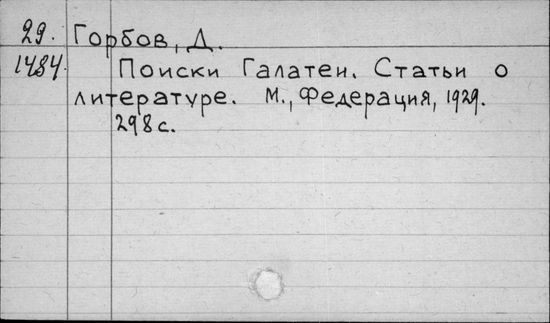 29. Горбов, Д.
1484. Поиски Галатеи. Статьи о
литературе. М., Федерация, 1929.
298 с.